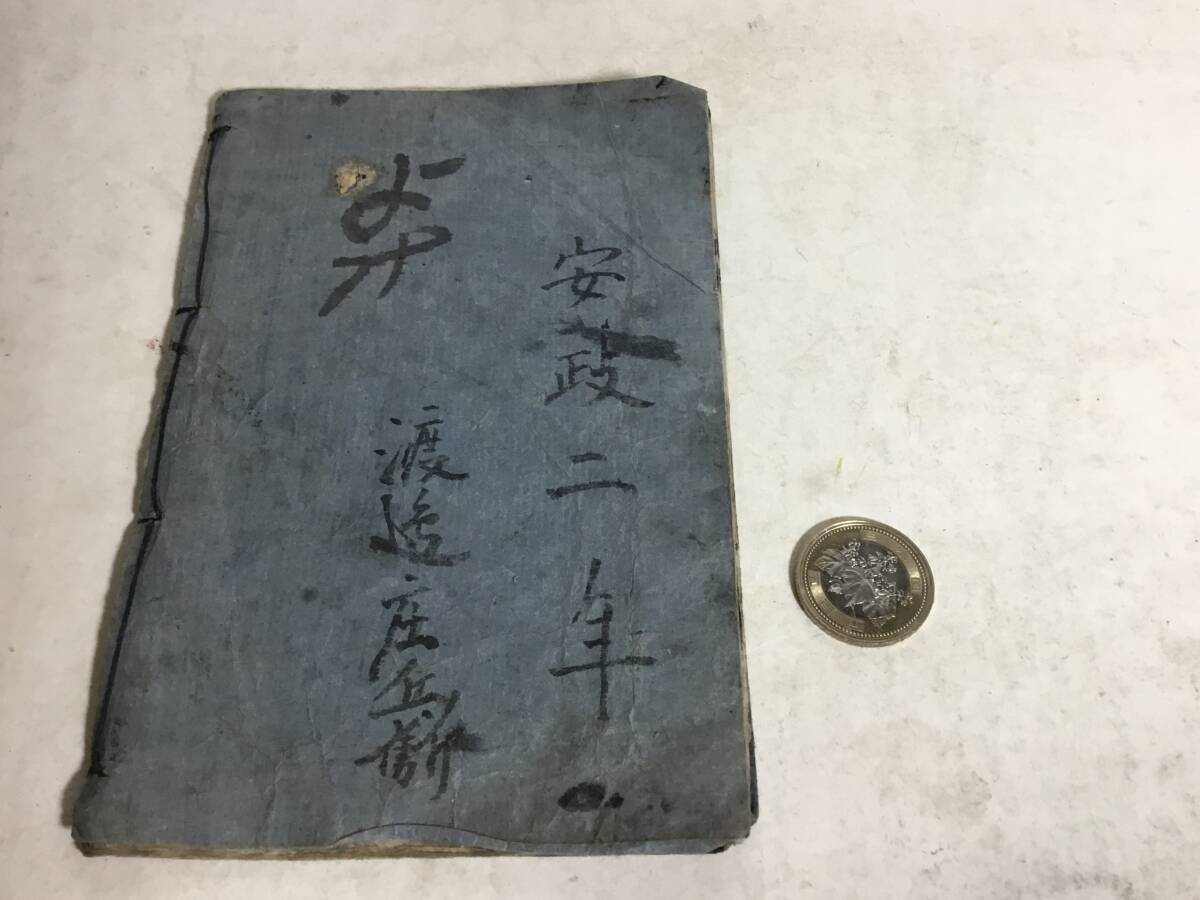 安政二年
渡邉庄兵衛